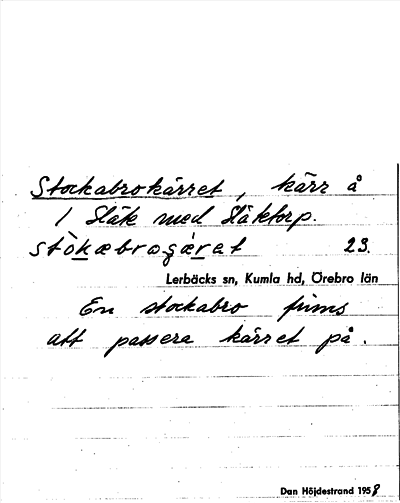 Stockabrokärret, kärr å
1 Släk med Släktorp.
stòkæbrogä̀ret 23.
Lerbäcks sn, Kumla hd, Örebro län
En stockabro finns
att passera kärret på.
Dan Höjdestrand 1958